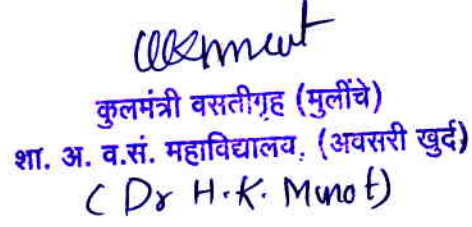 कुलमंत्री वसतीगृह (मुलींचे)
शा. अ. व.सं. महाविद्यालय, (अवसरी खुर्द)
( Dr H.K. Munot)